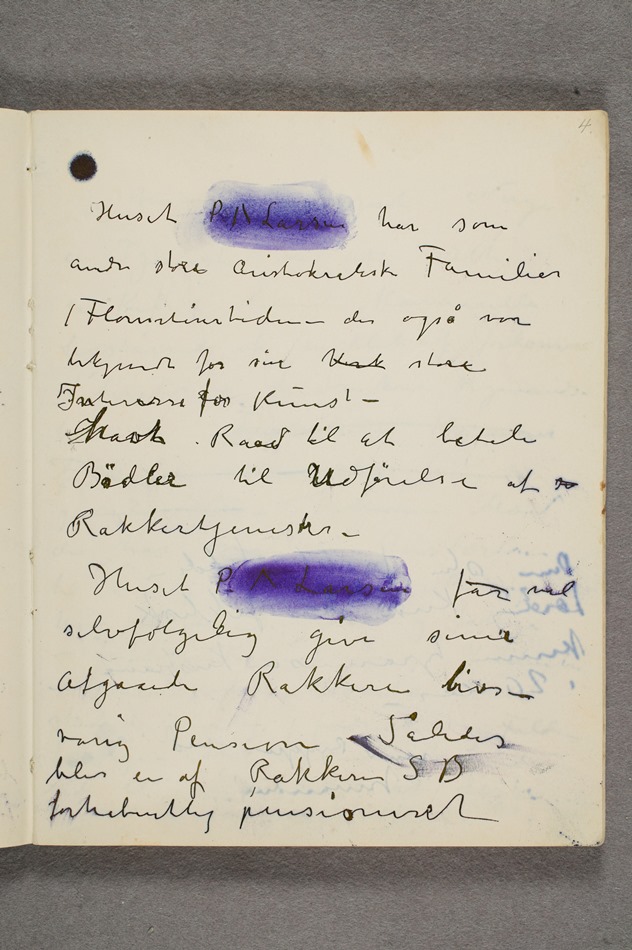 4.
Huset P. A Larsen har som
andre store aristokratiske Familier
i Florentinertiden – der også var
bekjendt for sin stærk store
Interesse for Kunst –
Havt Raad til at betale
Bödler til Udførelse af s
Rakkertjenester –
Huset P. A Larsen får vel
selvfølgelig give sine
afgaaede Rakkere livs–
varig Pension – Således
blev en af Rakkerne S B
forhabentlig pensioneret